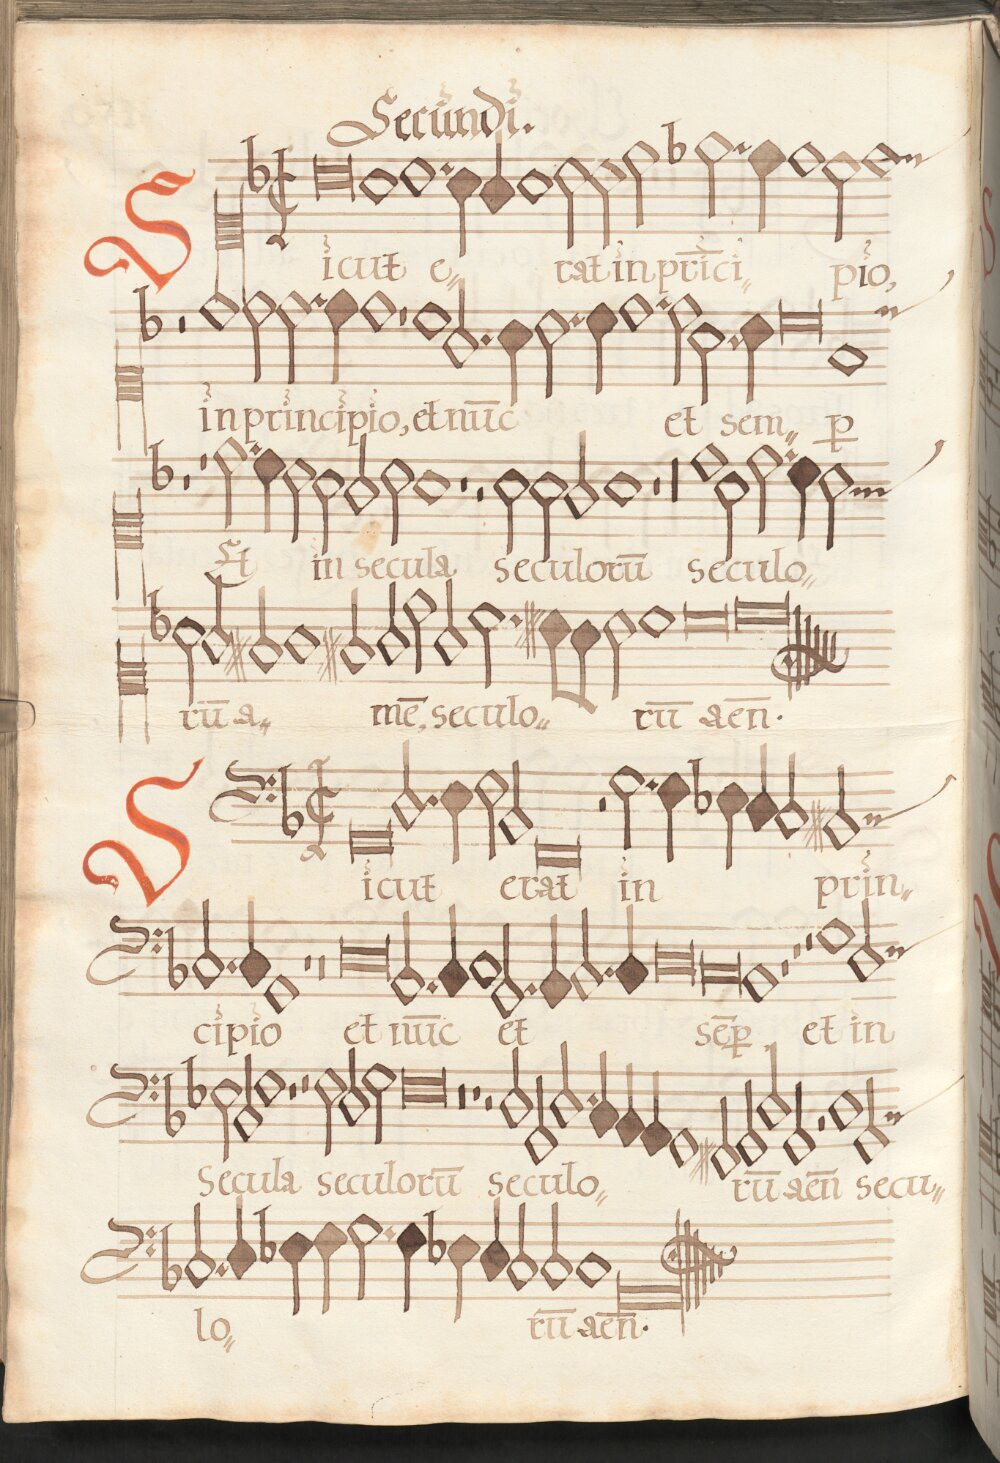 Secundi.
Sicut e„ rat in prīci„ pio,
in principio, et nūc et sem„ p̄
Et in secula seculorū seculo„
rū a„ mē, seculo„ rū aen̄.
Sicut erat in prin„
cipio et nūc et sēp̄, et in
secula seculorū seculo„ rū aen̄ secu„
lo„ rū aen̄.